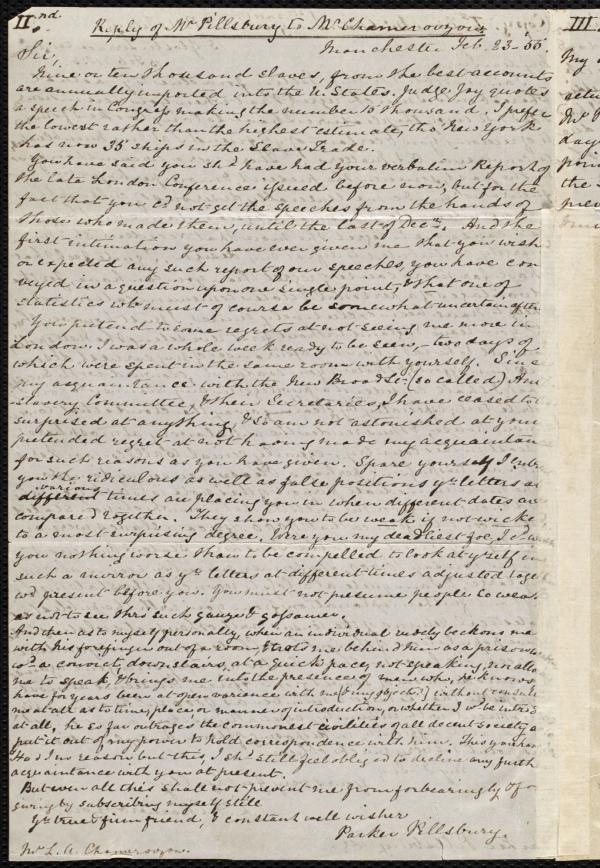 II.nd
Reply of Mr Pillsbury to Mr Chamerovzow
Manchester Feb. 23-55.
Sir,
Nine or ten thousand slaves, from the best accounts
are annually imported into the U. States. Judge Jay quotes
a speech in Congress making the number 15 thousand. I prefer
the lowest rather than the highest estimate, tho' New York
has now 35 ships in the Slave Trade.
You have said you shd have had your verbatim Report of
the late London Conference issued before now, but for the
fact that you cd not get the speeches from the hands of
those who made them, until the last of Decr. And the
first intimation you have ever given me that you wish
or expected any such report of our speeches, you have con
veyed in a question upon one single point, & that one of
statistics wh must of course be somewhat uncertain often
You pretend to some regrets at not seeing me more in
London. I was a whole week ready to be seen,- two days of
which were spent in the same room with yourself. Since
my acquaintance with the New Broad St. (so called) Anti
-slavery Committee, & their Secretaries, I have ceased to
surprised at anything, & so am not astonished at your
pretended regret at not having made my acquaintan
for such reasons as you have given. Spare yourself I
you the ridiculous as well as false positions yr letters at
various
different times are placing you in when different dates are
compared together. They show you to be weak if not wicke
to a most surprising degree. Were you my deadliest foe, I cd wish
you nothing worse than to be compelled to look at yrself in
such a mirror as yr letters at different times adjusted toget
wd present before you. You must not presume people so weak
as not to see thro' such gauze & gossamer.
And then as to myself personally, when an individual rudely beckons me
with his forefinger out of a room, & trots me behind him as a prisone
wd a convict, down stairs, at a quick pace, not speaking, nor allo
me to speak, & brings me into the presence of men who, he knows
have for years been at open variance with me (& my objects!) without consult
me at all as to time, place or manner of introduction, or whether I wd be introd
at all, he so far outrages the commonest civilities of all decent society as
put it out of my power to hold correspondence with him. This you have
Had I no reason but this, I shd still feel obliged to decline any furth
acquaintance with you at present.
But even all this shall not prevent me from forbearingly &
subscribing myself still
Yr true & firm friend, & constant well wisher
Parker Pillsbury.
Mr L. A. Chamerovzow.
III
My
actu
Mr P
days
poin
the
prev